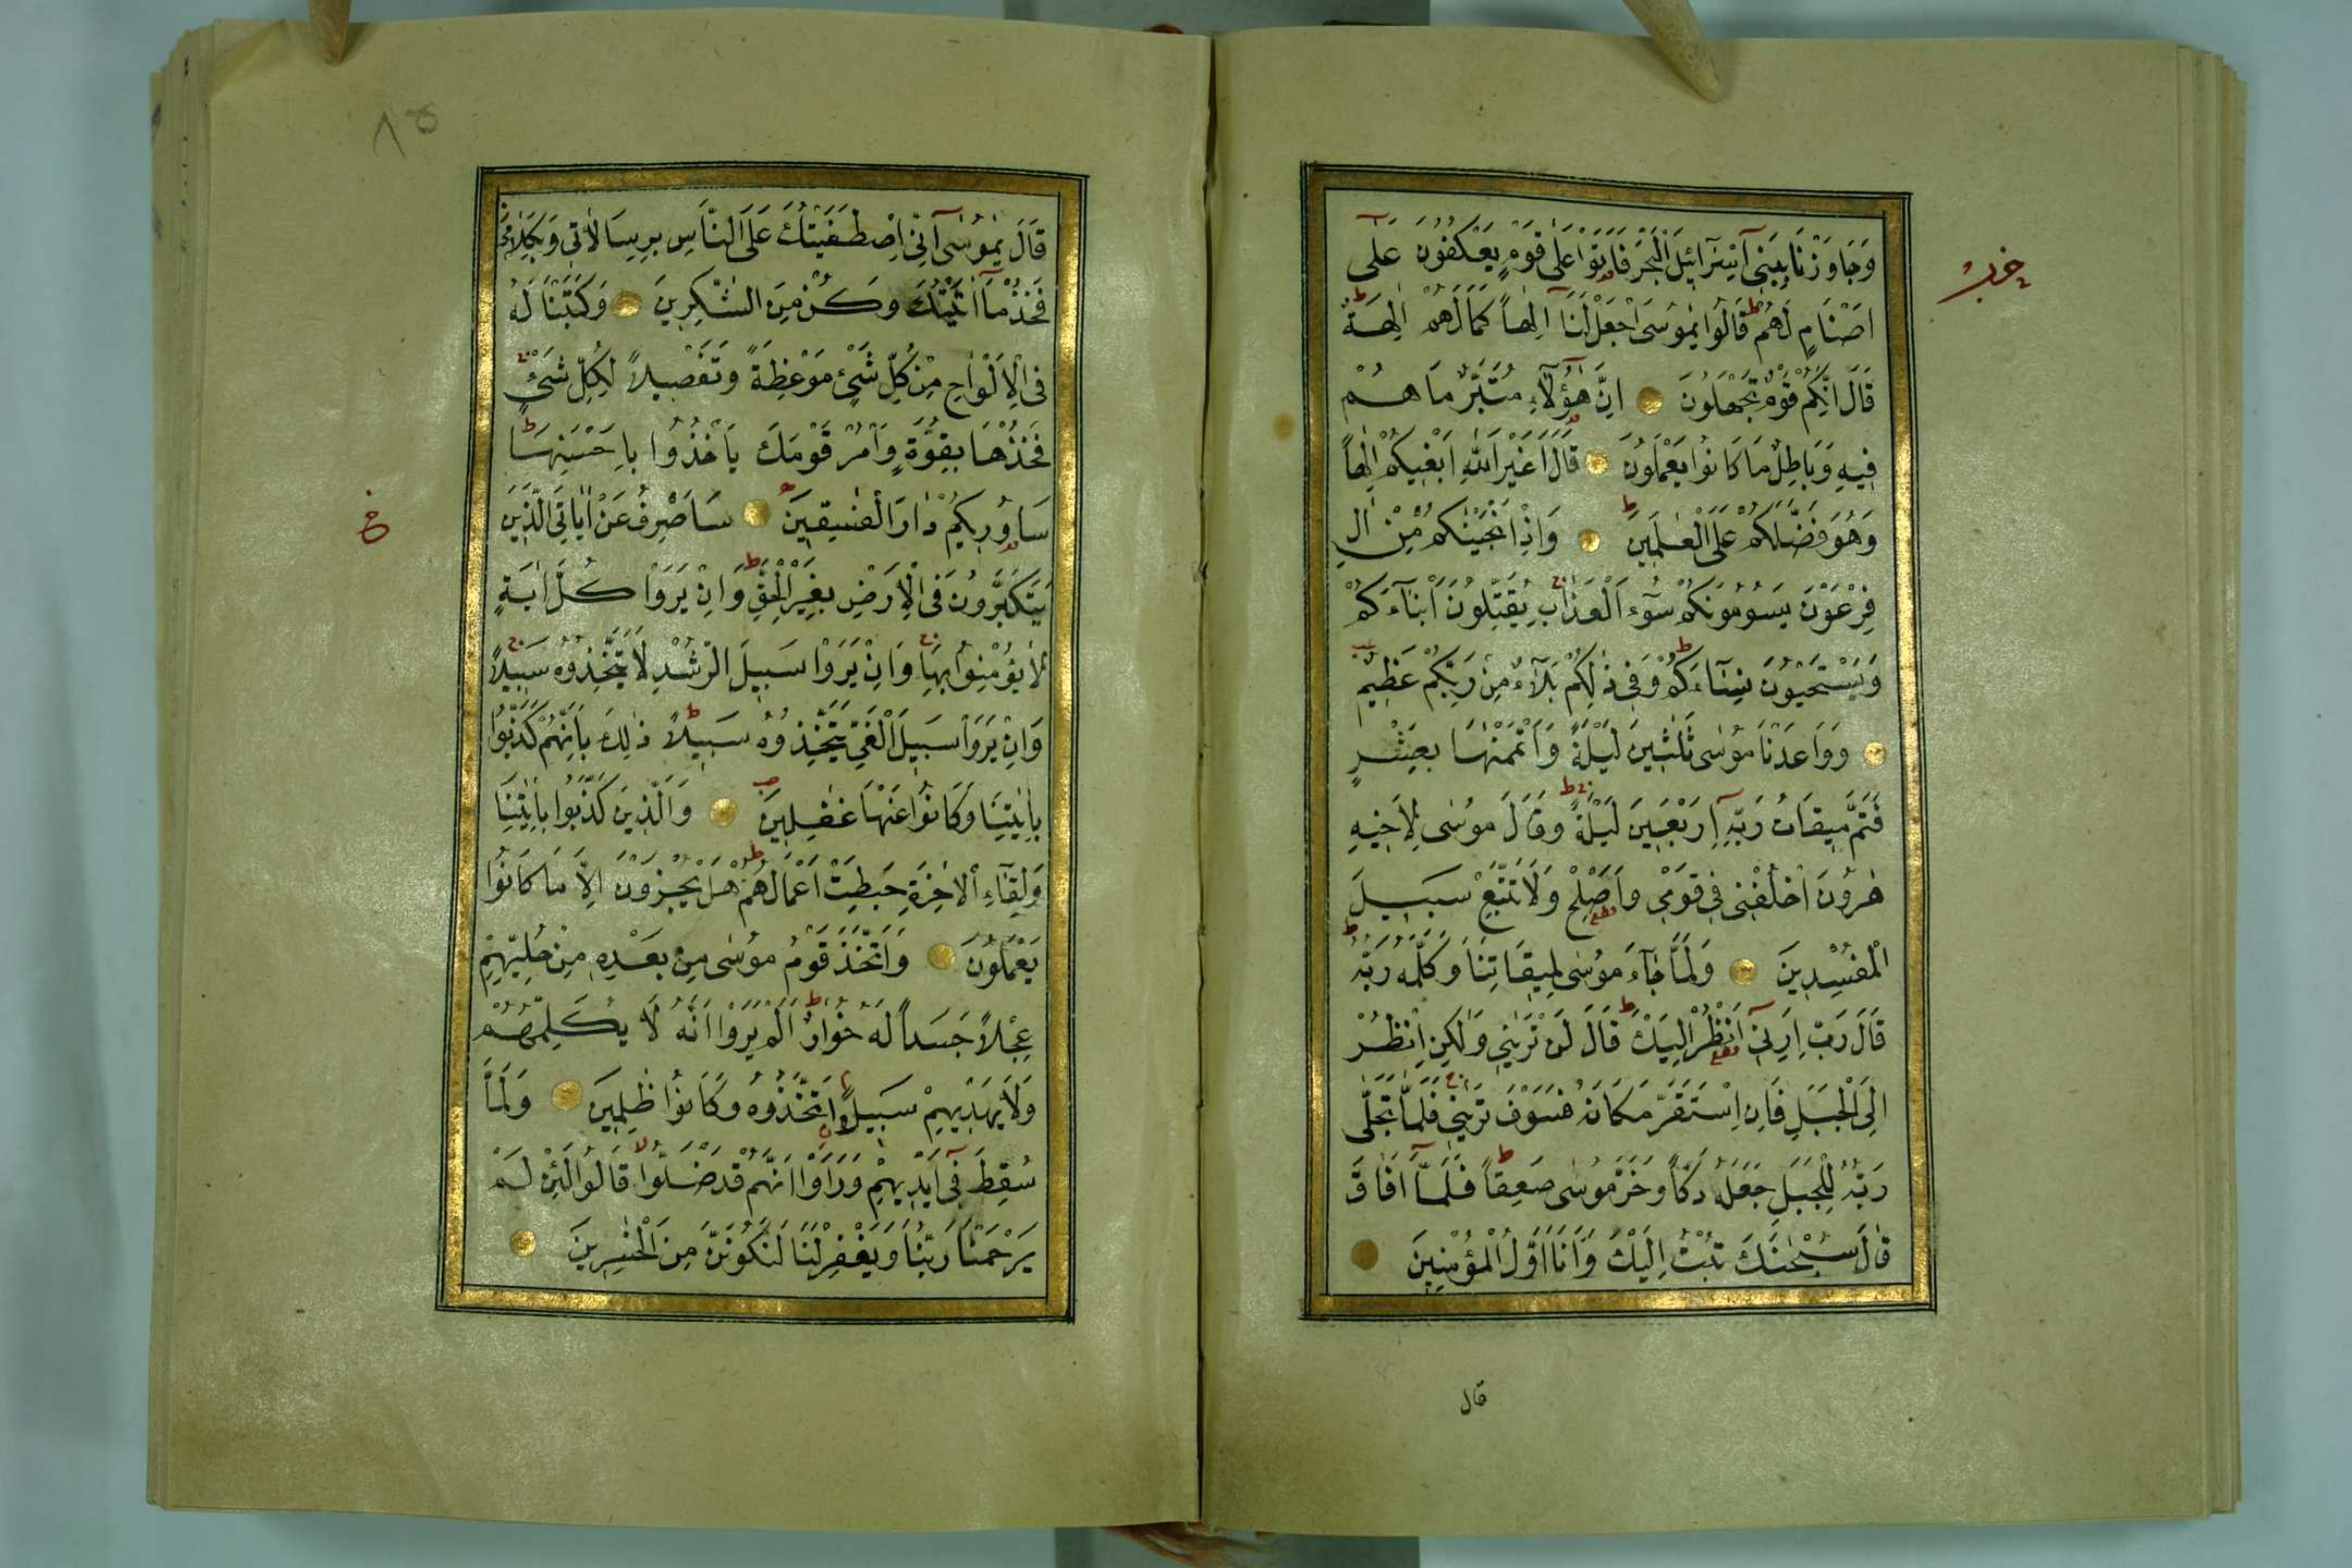 وَجَاوَزْنَا بِبَنِٓي اِسْرَٓائِلَ الْبَحْرَ فَاَتَوْا عَلٰى قَوْمٍ يَعْكُفُونَ عَلٰٓى
اَصْنَامٍ لَهُمْ قَالُوا يٰمُوسَى اجْعَلْ لَنَٓا اِلٰهاً كَمَا لَهُمْ اٰلِهَةٌ
قَالَ اِنَّكُمْ قَوْمٌ تَجْهَلُونَ اِنَّ هٰٓؤُلَٓاءِ مُتَبَّرٌ مَا هُمْ
فِيهِ وَبَاطِلٌ مَا كَانُوا يَعْمَلُونَ قَالَ اَغَيْرَ اللّٰهِ اَبْغِيكُمْ اِلٰهاً
وَهُوَ فَضَّلَكُمْ عَلَى الْعٰلَمِينَ وَاِذْ اَنْجَيْنٰكُمْ مِنْ اٰلِ
فِرْعَوْنَ يَسُومُونَكُمْ سُٓوءَ الْعَذَابِ يُقَتِّلُونَ اَبْنَٓاءَكُمْ
وَيَسْتَحْيُونَ نِسَٓاءَكُمْ وَفِي ذٰلِكُمْ بَلَٓاءٌ مِنْ رَبِّكُمْ عَظِيمٌ
وَوَاعَدْنَا مُوسٰى ثَلٰثِينَ لَيْلَةً وَاَتْمَمْنٰهَا بِعَشْرٍ
فَتَمَّ مِيقَاتُ رَبِّهِٓ اَرْبَعِينَ لَيْلَةً وَقَالَ مُوسٰى لِاَخِيهِ
هٰرُونَ اخْلُفْنِي فِي قَوْمِي وَاَصْلِحْ وَلَا تَتَّبِعْ سَبِيلَ
الْمُفْسِدِينَ وَلَمَّا جَٓاءَ مُوسٰى لِمِيقَاتِنَا وَكَلَّمَهُ رَبُّهُ
قَالَ رَبِّ اَرِنِٓي اَنْظُرْ اِلَيْكَ قَالَ لَنْ تَرٰينِي وَلٰكِنِ انْظُرْ
اِلَى الْجَبَلِ فَاِنِ اسْتَقَرَّ مَكَانَهُ فَسَوْفَ تَرٰينِي فَلَمَّا تَجَلّٰى
رَبُّهُ لِلْجَبَلِ جَعَلَهُ دَكّاً وَخَرَّ مُوسٰى صَعِقاً فَلَمَّٓا اَفَاقَ
قَالَ سُبْحٰنَكَ تُبْتُ اِلَيْكَ وَاَنَا اَوَّلُ الْمُؤْمِنِينَ
قال
حزب
٨٥
قَالَ يٰمُوسٰٓى اِنِّي اصْطَفَيْتُكَ عَلَى النَّاسِ بِرِسَالَاتِي وَبِكَلَامِي
فَخُذْ مَٓا اٰتَيْتُكَ وَكُنْ مِنَ الشّٰكِرِينَ وَكَتَبْنَا لَهُ
فِي الْاَلْوَاحِ مِنْ كُلِّ شَيْءٍ مَوْعِظَةً وَتَفْصِيلاً لِكُلِّ شَيْءٍ
فَخُذْهَا بِقُوَّةٍ وَأْمُرْ قَوْمَكَ يَأْخُذُوا بِاَحْسَنِهَا
سَاُورِيكُمْ دَارَ الْفٰسِقِينَ سَاَصْرِفُ عَنْ اٰيَاتِيَ الَّذِينَ
يَتَكَبَّرُونَ فِي الْاَرْضِ بِغَيْرِ الْحَقِّ وَاِنْ يَرَوْا كُلَّ اٰيَةٍ
لَا يُؤْمِنُوا بِهَا وَاِنْ يَرَوْا سَبِيلَ الرُّشْدِ لَا يَتَّخِذُوهُ سَبِيلاً
وَاِنْ يَرَوْا سَبِيلَ الْغَيِّ يَتَّخِذُوهُ سَبِيلاً ذٰلِكَ بِاَنَّهُمْ كَذَّبُوا
بِاٰيٰتِنَا وَكَانُوا عَنْهَا غٰفِلِينَ وَالَّذِينَ كَذَّبُوا بِاٰيٰتِنَا
وَلِقَٓاءِ الْاٰخِرَةِ حَبِطَتْ اَعْمَالُهُمْ هَلْ يُجْزَوْنَ اِلَّا مَا كَانُوا
يَعْمَلُونَ وَاتَّخَذَ قَوْمُ مُوسٰى مِنْ بَعْدِهِ مِنْ حُلِيِّهِمْ
عِجْلاً جَسَداً لَهُ خُوَارٌ اَلَمْ يَرَوْا اَنَّهُ لَا يُكَلِّمُهُمْ
وَلَا يَهْدِيهِمْ سَبِيلاً اِتَّخَذُوهُ وَكَانُوا ظٰلِمِينَ وَلَمَّا
سُقِطَ فِٓي اَيْدِيهِمْ وَرَاَوْا اَنَّهُمْ قَدْ ضَلُّوا قَالُوا لَئِنْ لَمْ
يَرْحَمْنَا رَبُّنَا وَيَغْفِرْ لَنَا لَنَكُونَنَّ مِنَ الْخٰسِرِينَ